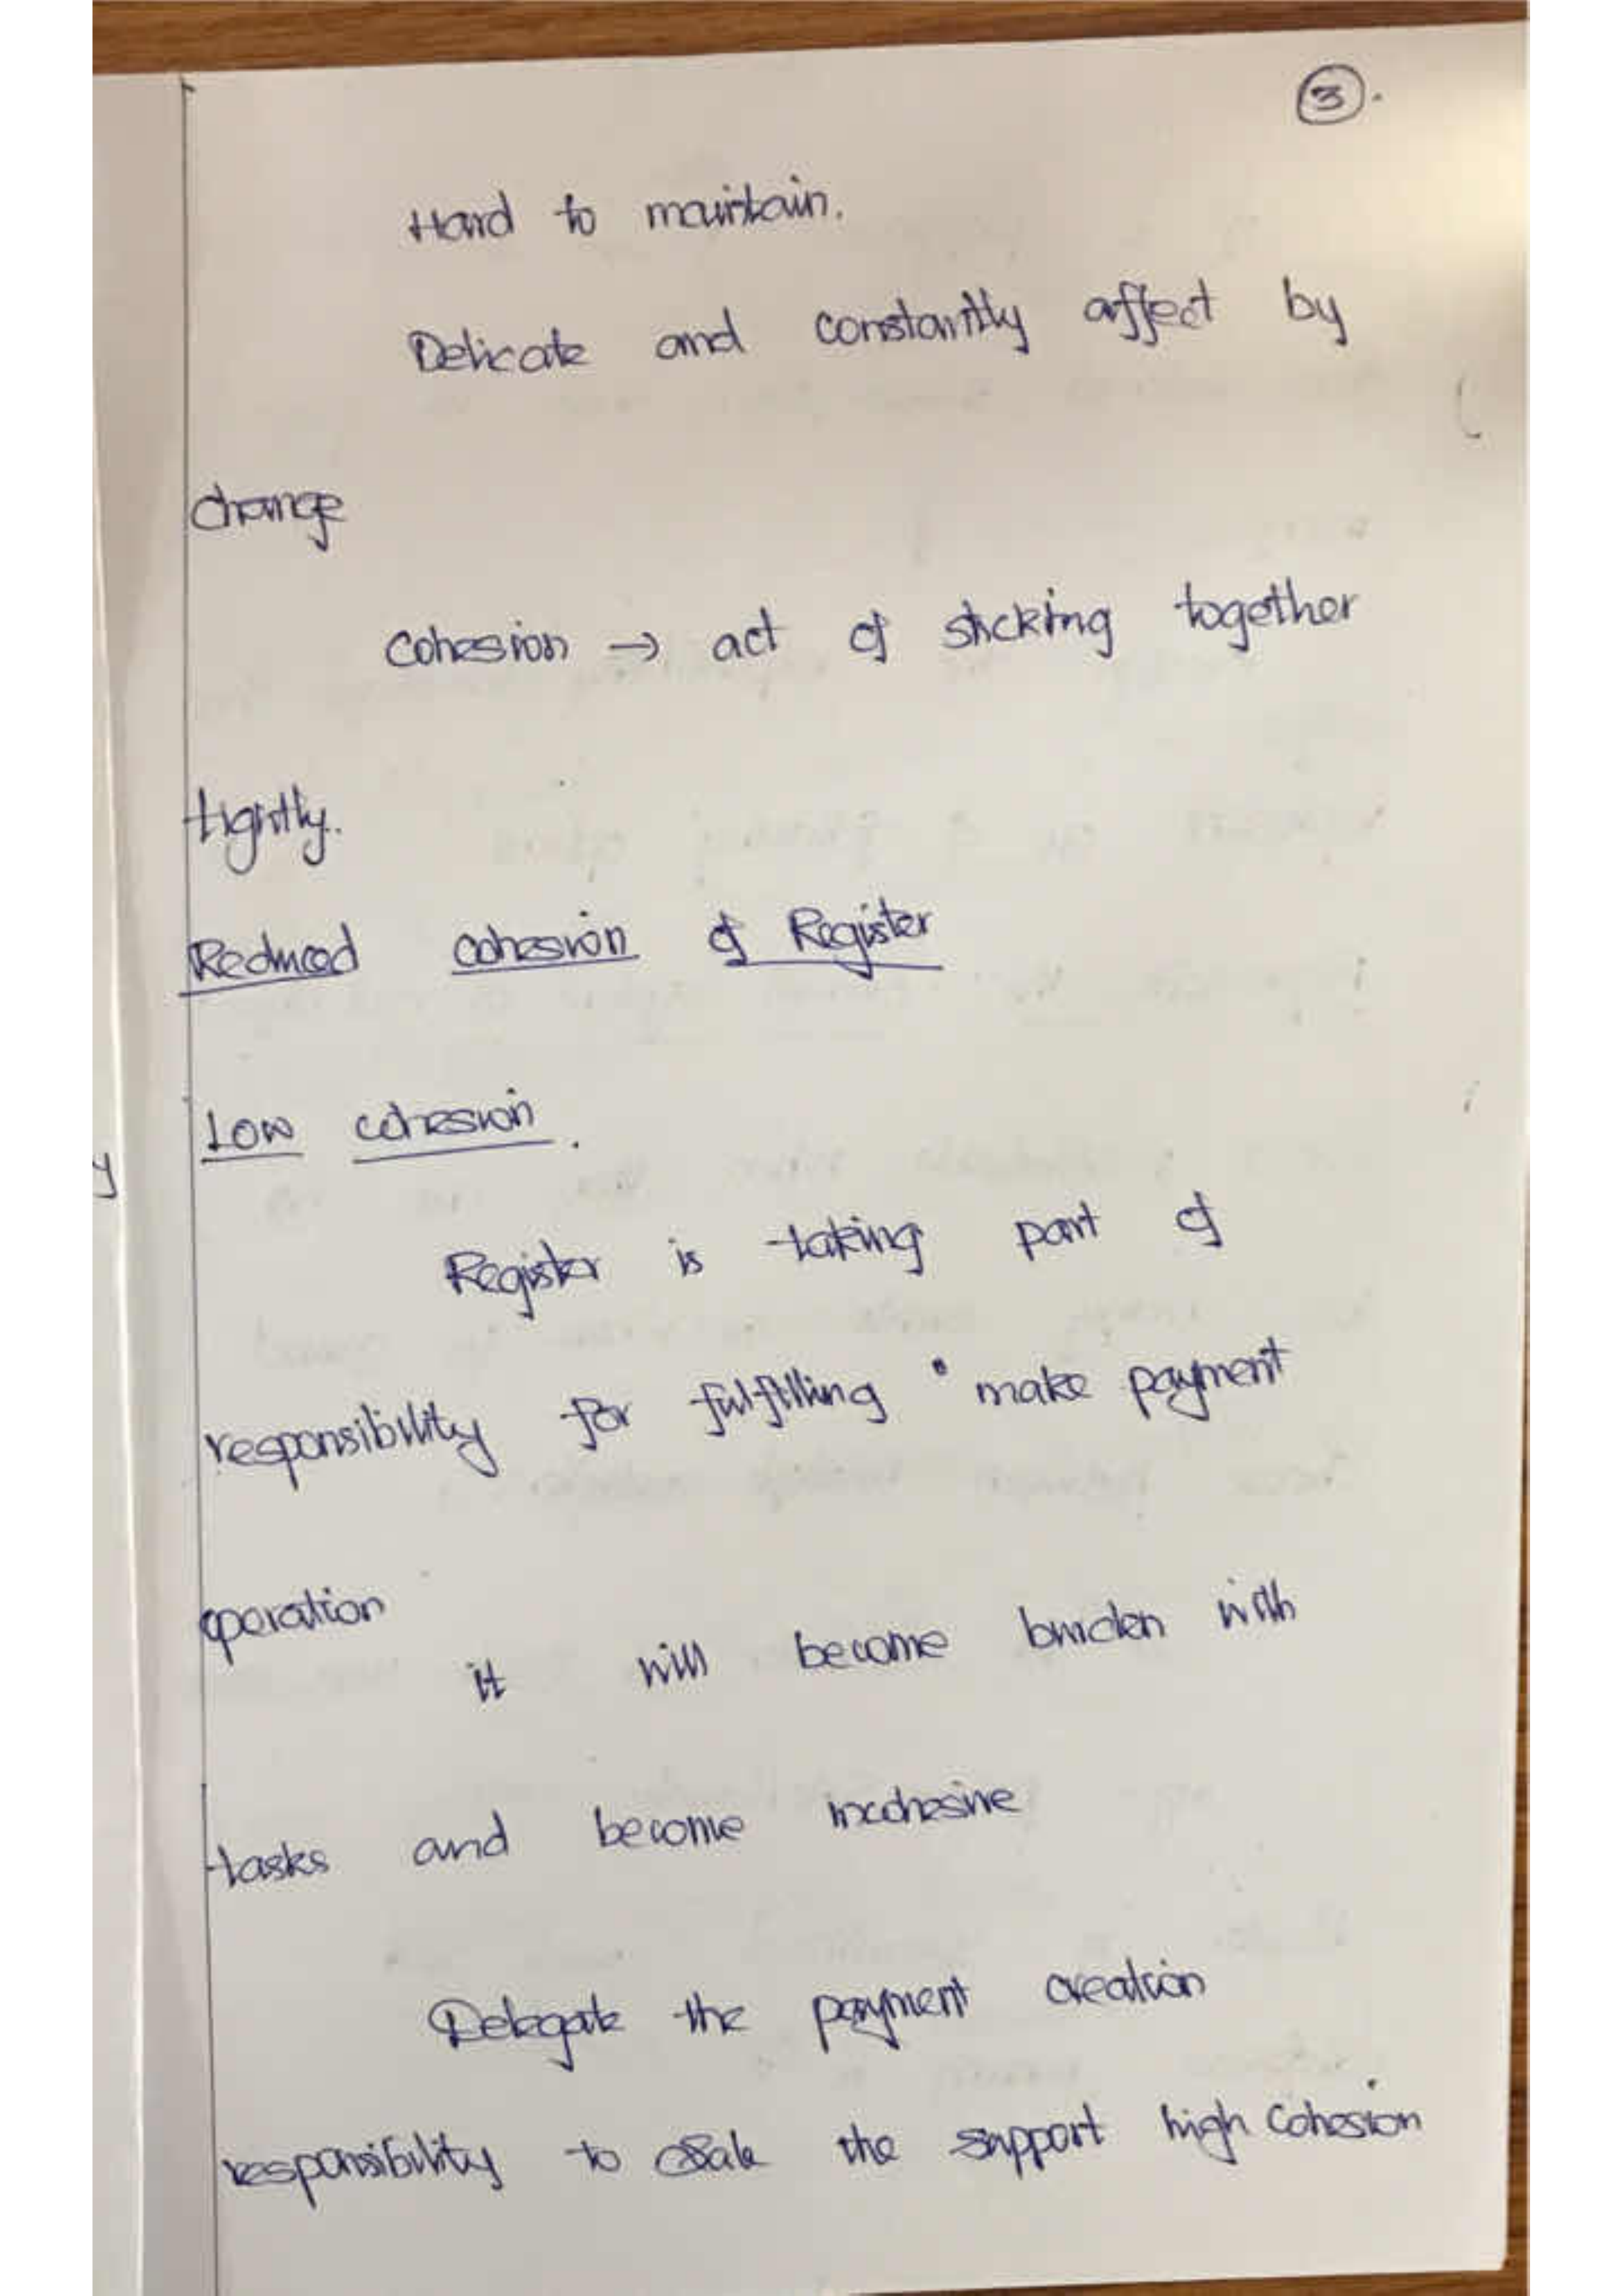 3.
Hard to maintain.
Delicate and constantly affect by
change
Cohesion → act of sticking together
tightly.
Reduced cohesion of Register
Low cohesion.
Register is taking part of
responsibility for fulfilling " make payment
operation
it will become burden with
tasks and become incohesive
Delegate the payment creation
responsibility to Sale the support high Cohesion
y